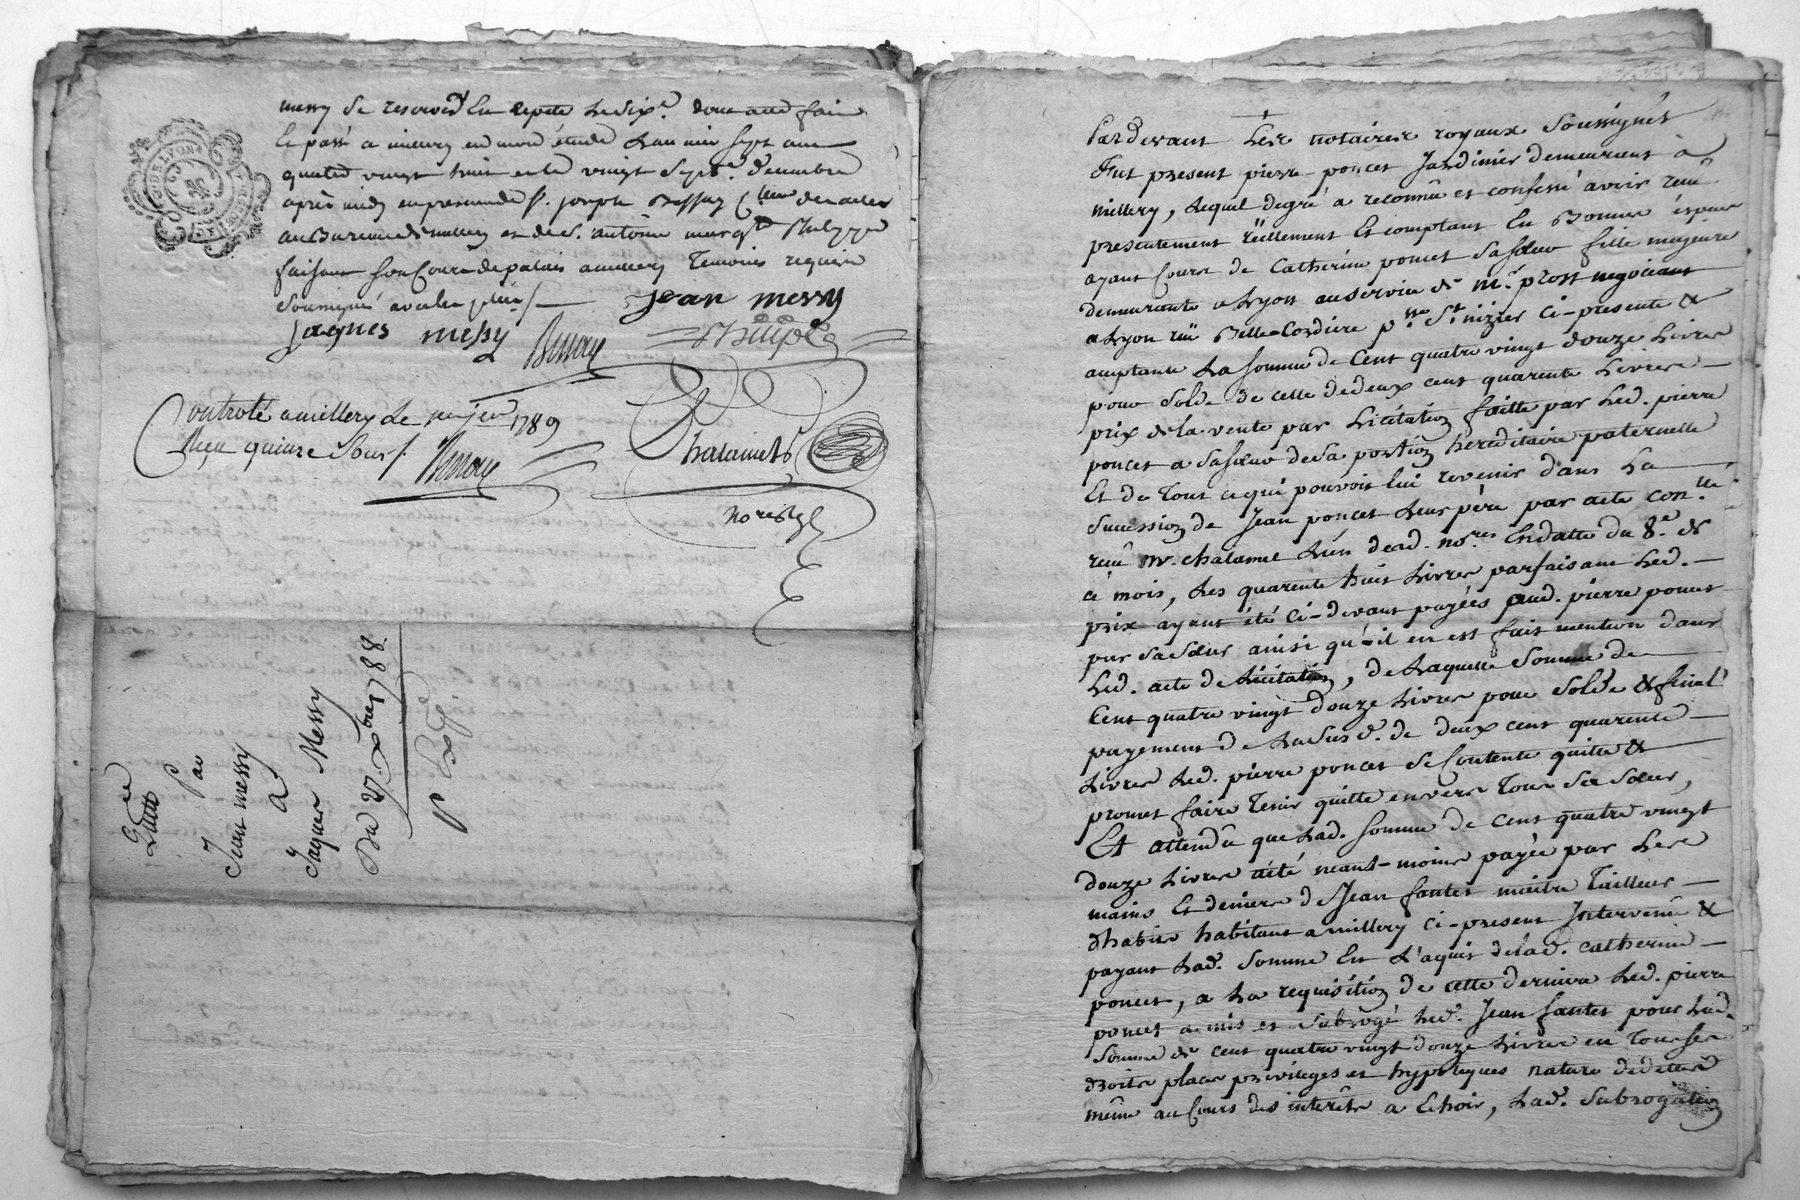 messy se reservent
Et passé a millery en mon étude L'an mil sept cent
quatre vingt huit et le vingt sept.e decembre
après midy en presence de s.r joseph Bessay
au Bureau de millery et de s.r antoine
faisant son Cours de palais a millery Temoins requis
soussignés avec les parties
jean messy
jaques messy
Controlé a millery Le 1789
Reçu quinze sous
Chalamel
no.re Royal
Quitt.ce
Par
Jean messy
A
Jaques Messy
Du 27. Xbre 1788
DE LYON
Pardevant Les notaires royaux Soussignés
Fut present pierre poncet Jardinier demeurant à
millery, Lequel de gré a reconnû et confessé avoir reçu
presentement réellement Et comptant En Bonnes espèces
ayant Cours de Catherine poncet Sa sœur fille majeure
demeurante a Lyon au service de m.r prost negociant
a Lyon rüe Belle-Cordiere p.sse St nizier Ci-presente &
acceptante La somme de Cent quatre vingt douze Livres
pour Solde de celle de deux cent quarente Livres
prix de la vente par Licitation faitte par Led. pierre
poncet a Sa sœur de Sa portion hereditaire paternelle
Et de Tout ce qui pouvoit lui revenir dans La
Succession de Jean poncet Leur père par acte
reçu m.e chalamel L'un desd. no.res En datte du 8.e de
ce mois, Les quarente huit Livres parfaisant Led.
prix ayant été Ci-devant payées aud. pierre poncet
par sa Sœur ainsi qu'il en est fait mention dans
Led. acte de Licitation, de Laquelle Somme de
Cent quatre vingt douze Livres pour Solde & final
payement de La Susd. de deux cent quarente
Livres Led. pierre poncet se Contente quitte &
promet faire Tenir quitte envers Tous Sa Sœur,
Et attendû que Lad. Somme de cent quatre vingt
douze Livres a été neant-moins payée par Les
mains Et deniers de Jean fantet maitre Tailleur
d'habits habitant a millery Ci-present Intervenû &
payant Lad. Somme En L'aquit de lad. Catherine
poncet, a La requisition de cette derniere Led. pierre
poncet a mis et Subrogé Led. Jean fantet pour Lad.
Somme de cent quatre vingt douze Livres en Tous Ses
droits places privileges et hypoteques nature de dettes
même au Cours des interêts a Echoir, Lad. Subrogation